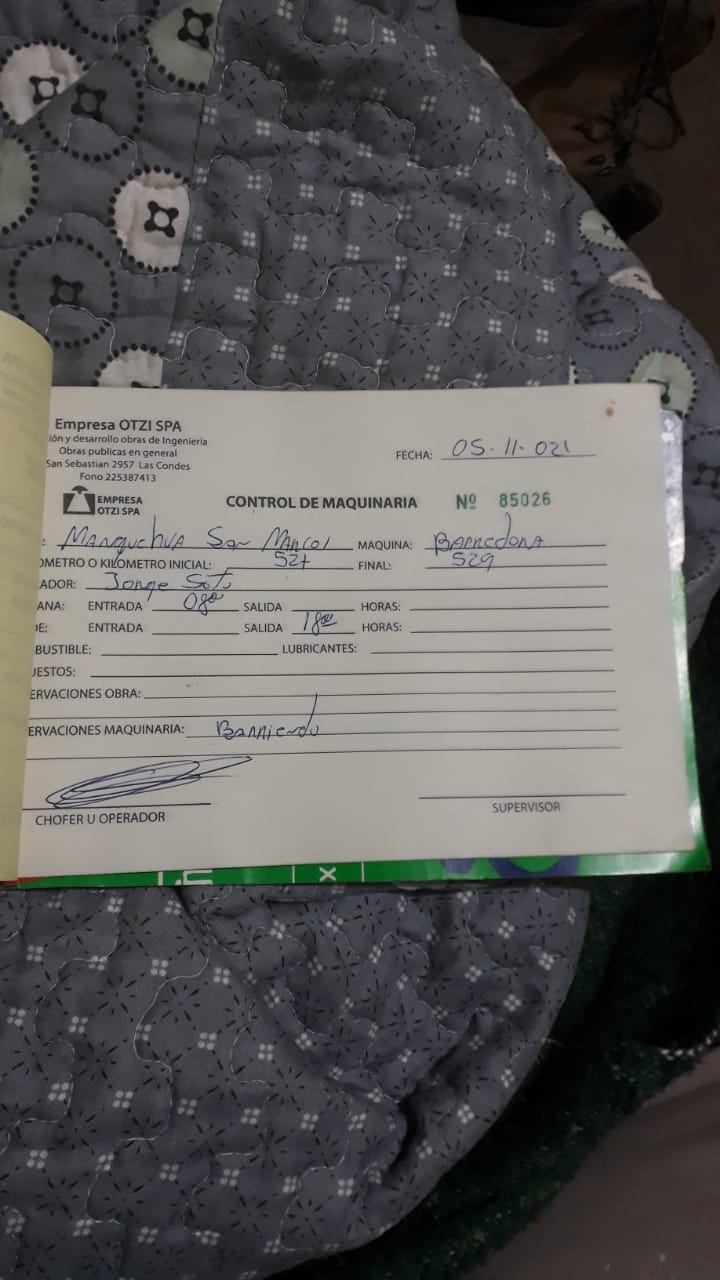 Empresa OTZI SPA
ión y desarrollo obras de Ingeniería
Obras publicas en general
San Sebastian 2957 Las Condes
Fono 225387413
FECHA: 05-11-021
EMPRESA
OTZI SPA
CONTROL DE MAQUINARIA Nº 85026
: Manquehua San Marcol MAQUINA: Barredora
OMETRO O KILOMETRO INICIAL: 527 FINAL: 529
ADOR: Jorge Soto
ANA: ENTRADA 08⁰⁰ SALIDA HORAS:
DE: ENTRADA SALIDA 18⁰⁰ HORAS:
BUSTIBLE: LUBRICANTES:
UESTOS:
ERVACIONES OBRA:
ERVACIONES MAQUINARIA: Barriendo
CHOFER U OPERADOR
SUPERVISOR